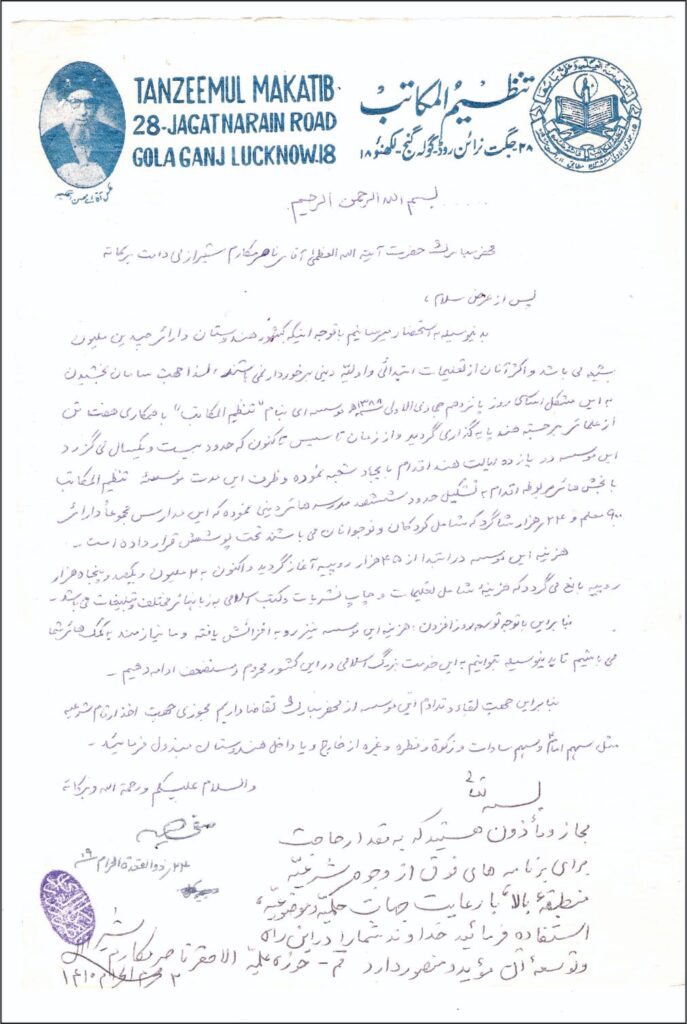 TANZEEMUL MAKATIB
28-JAGAT NARAIN ROAD
GOLA GANJ LUCKNOW.18
تنظیم المکاتب
۲۸ جگت نرائن روڈ۔ گولہ گنج۔ لکھنؤ ۱۸
بسم الله الرحمن الرحیم
محضر مبارک حضرت آیة الله العظمی آقای ناصر مکارم شیرازی دامت برکاته
پس از عرض سلام ،
بدینوسیله به استحضار میرسانیم با توجه اینکه کشور هندوستان دارائر چندین ملیون
شیعه می باشد و اکثر آنان از تعلیمات ابتدائی و اولیّه دینی برخوردار نمی باشند، لذا جهت سامان بخشیدن
به این مشکل اساسی روز پانزدهم جمادی الاولی ۱۳۸۸ موسسه ای بنام "تنظیم المکاتب" با همکاری هفت تن
از علمائر برجسته هند پایه گذاری گردید و از زمان تاسیس تا کنون که حدود بیست و یکسال می گزرد
این موسسه در یازده ایالت هند اقدام با یجاد شعبه نموده و ظرف این مدت موسسهٔ تنظیم المکاتب
با بخش هائر مربوطه اقدام به تشکیل حدود ششصد مدرسه هائر دینی نموده که این مدارس مجموعاً دارائر
۹۰۰ معلم و ۲۴ هزار شاگرد که شامل کودکان و نوجوانان می باشند تحت پوشش قرار داده است -
هزینه این موسسه در ابتدا از ۴۵ هزار روپیه آغاز گردید و اکنون به ۲ ملیون و یکصد و پنجاه هزار
روپیه بالغ می گردد که هزینهٔ شامل تعلیمات و چاپ نشریات و کتب اسلامی به زبانهائر مختلف و تبلیغات می باشد-
بنابراین با توجه توسعه روز افزون، هزینه این موسسه نیز رو به افزائش یافته و ما نیازمند به کمک هائر شما
می باشیم تا بدینوسیله بتوانیم به این خدمت بزرگ اسلامی در این کشور محروم و مستضعف ادامه دهیم -
بنابراین جهت بقاء و تداوم این موسسه از محضر مبارک تقاضا داریم مجوزی جهت اخذ ارقام شرعیه
مثل سهم امامؑ و سهم سادات و زکوة و فطره و غیره از خارج و یا داخل هندوستان مبذول فرمائید -
والسلام علیکم و رحمة الله و برکاته
۲۴ ذوالقعدة الحرام ۰۹
بسمه تعالی
مجاز و مأذون هستید که به مقدار حاجت
برای برنامه های فوق از وجوه شرعیّه
منطقهٔ بالا با رعایت جهات حکمیّه و موضوعیّه
استفاده فرمائید خداوند شما را در این راه
و توسعهٔ آن مؤید و منصور دارد قم - حوزه علمیّه الاحقر ناصر مکارم شیرازی
۲ محرم الحرام ۱۴۱۰